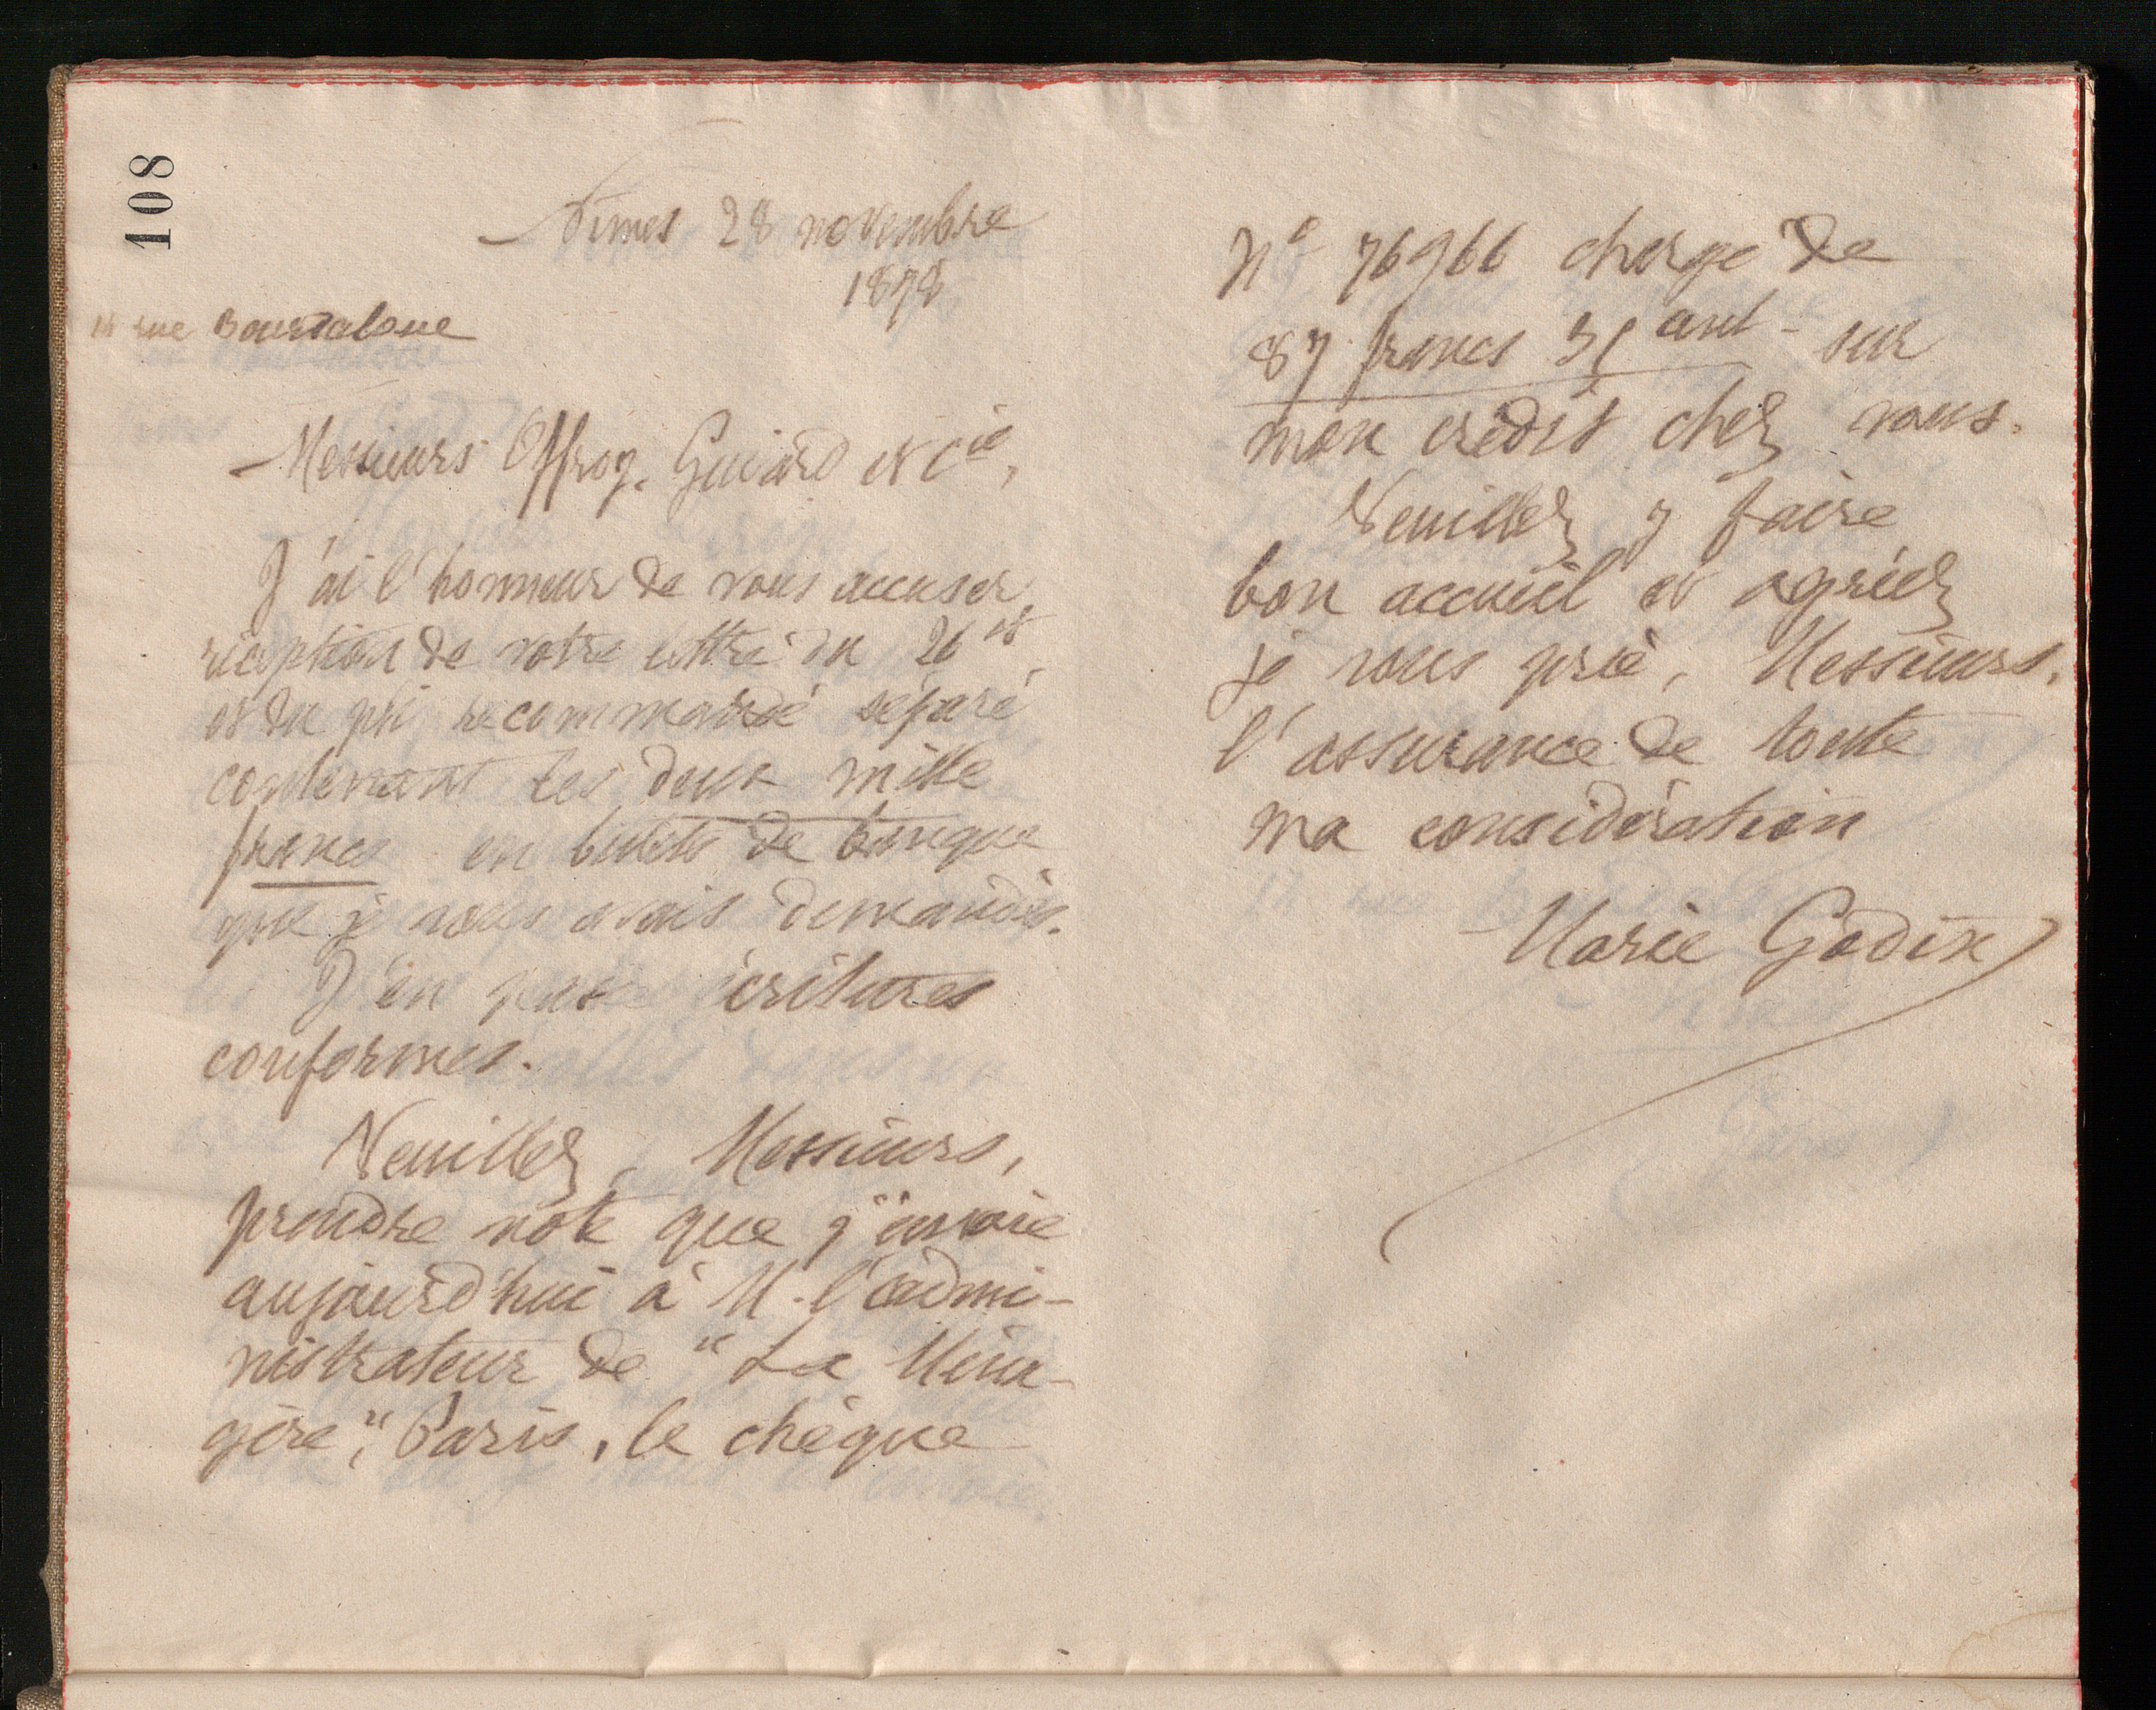 108
Nîmes 28 novembre
1878
14 rue Bourdaloue
Messieurs Offroy, Guiard et Cie,
J'ai l'honneur de vous accuser
réception de votre lettre du 26 ct
et du pli recommandé séparé
contenant les deux mille
francs en billets de banque
que je vous avais demandés.
J'en passe écritures
conformes.
Veuillez, Messieurs,
prendre note que j'envoie
aujourd'hui à M. l'admi-
nistrateur de "La Ména-
gère", Paris, le chèque
No 76966 chargé de
87 francs 35 cent - sur
mon crédit chez vous.
Veuillez y faire
bon accueil et agréez
je vous prie, Messieurs,
l'assurance de toute
ma considération
Marie Godin